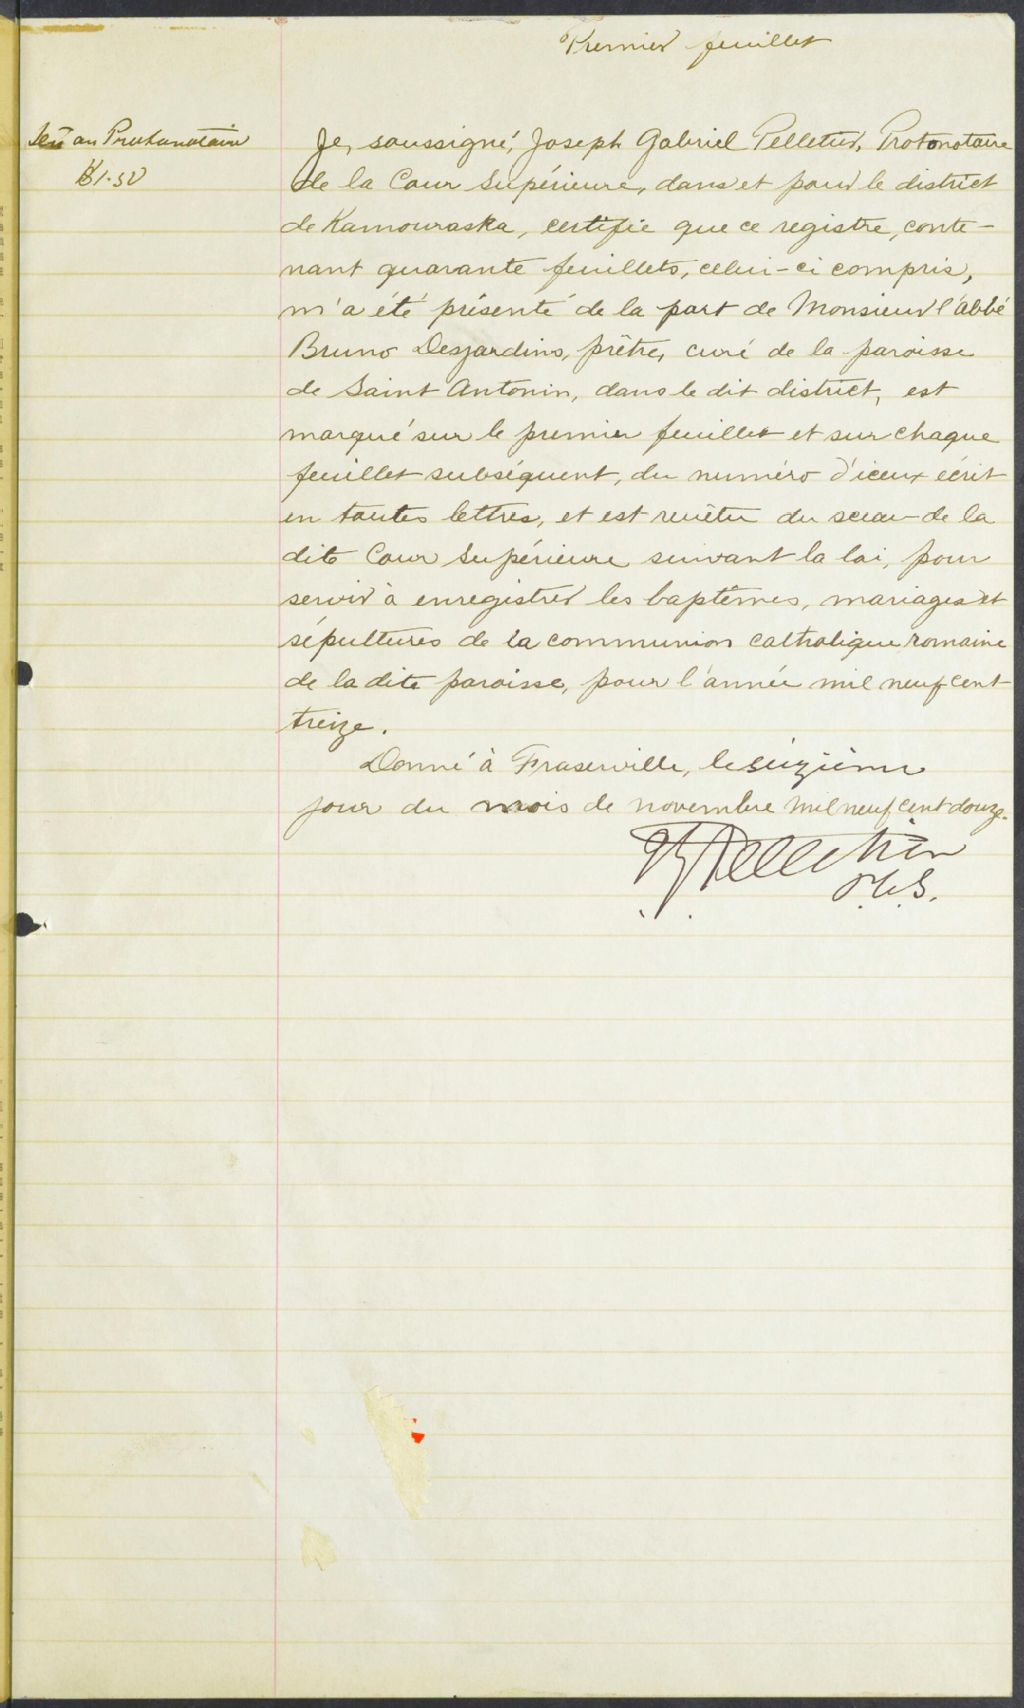 Premier feuillet
au Protonotaire
$1.50
Je, soussigné, Joseph Gabriel Pelletier, Protonotaire
de la Cour Supérieure, dans et pour le district
de Kamouraska, certifie que ce registre, conte-
nant quarante feuillets, celui-ci compris,
m'a été présenté de la part de Monsieur l'abbé
Bruno Desjardins, prêtre, curé de la paroisse
de Saint Antonin, dans le dit district, est
marqué sur le premier feuillet et sur chaque
feuillet subséquent, du numéro d'iceux écrit
en toutes lettres, et est revêtu du sceau de la
dite Cour Supérieure suivant la loi, pour
servir à enregistrer les baptêmes, mariages et
sépultures de la communion catholique romaine
de la dite paroisse, pour l'année mil neuf cent
treize.
Donné à Fraserville, le seizième
jour du mois de novembre mil neuf cent douze.
Pelletier
P.C.S.